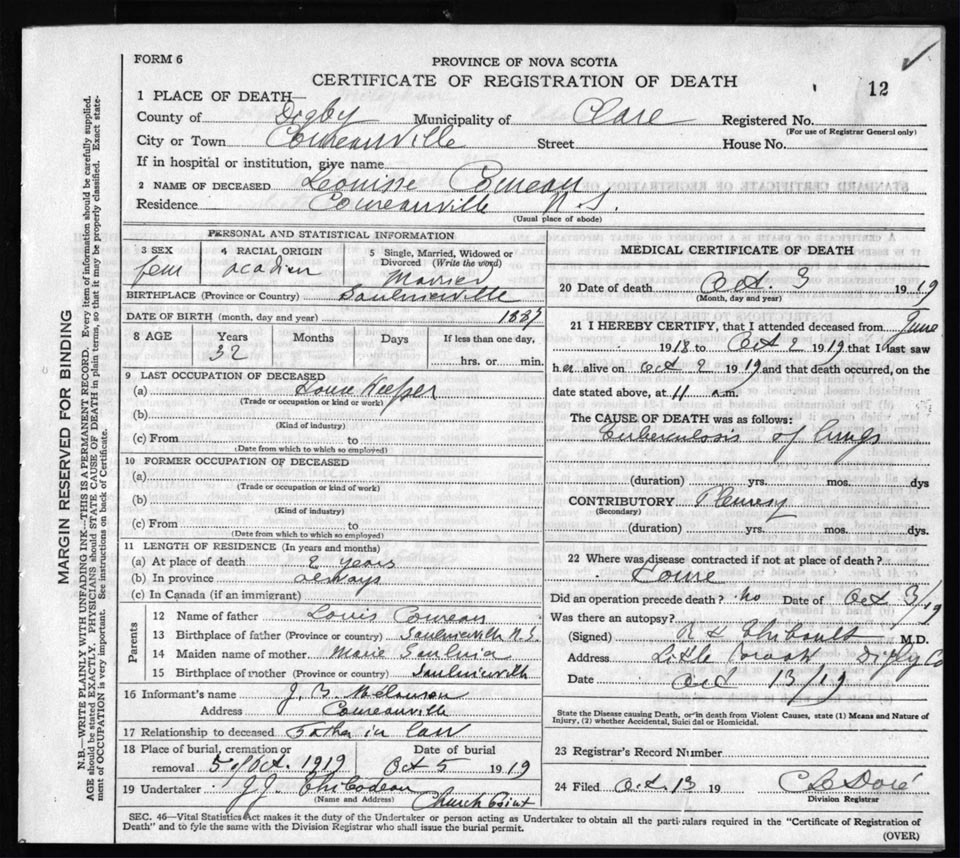 FORM 6
PROVINCE OF NOVA SCOTIA
CERTIFICATE OF REGISTRATION OF DEATH
12
1 PLACE OF DEATH—
County of Digby Municipality of Clare Registered No.
(For use of Registrar General only)
City or Town Comeauville Street House No.
If in hospital or institution, give name
2 NAME OF DECEASED Leouisse Comeau
Residence Comeauville N.S.
(Usual place of abode)
PERSONAL AND STATISTICAL INFORMATION
3 SEX fem
4 RACIAL ORIGIN acadien
5 Single, Married, Widowed or Divorced (Write the word) Married
BIRTHPLACE (Province or Country) Saulnierville
DATE OF BIRTH (month, day and year) 1887
8 AGE Years Months Days If less than one day,
32 hrs. or min.
9 LAST OCCUPATION OF DECEASED
(a) House Keeper
(Trade or occupation or kind or work)
(b)
(Kind of industry)
(c) From to
(Date from which to which so employed)
10 FORMER OCCUPATION OF DECEASED
(a)
(Trade or occupation or kind of work)
(b)
(Kind of industry)
(c) From to
(Date from which to which so employed)
11 LENGTH OF RESIDENCE (In years and months)
(a) At place of death 2 years
(b) In province always
(c) In Canada (if an immigrant)
Parents
12 Name of father Louis Comeau
13 Birthplace of father (Province or country) Saulnierville N.S.
14 Maiden name of mother Marie Saulnia
15 Birthplace of mother (Province or country) Saulnierville
16 Informant's name J. B. Melanson
Address Comeauville
17 Relationship to deceased Father in law
18 Place of burial, cremation or removal 5 of Oct. 1919
Date of burial Oct 5 1919
19 Undertaker J.J. Thibodeau
(Name and Address) Church Point
MEDICAL CERTIFICATE OF DEATH
20 Date of death Oct. 3 1919
(Month, day and year)
21 I HEREBY CERTIFY, that I attended deceased from June
1918 to Oct 2 1919 that I last saw
her alive on Oct 2 1919 and that death occurred, on the
date stated above, at 11 a.m.
The CAUSE OF DEATH was as follows:
Tuberculosis of lungs
(duration) yrs. mos. dys
CONTRIBUTORY Pleuresy
(Secondary)
(duration) yrs. mos. dys.
22 Where was disease contracted if not at place of death?
Home
Did an operation precede death? no Date of Oct 3/19
Was there an autopsy?
(Signed) Thibault M.D.
Address Little Brook Digby Co
Date Oct 13/19
State the Disease causing Death, or in death from Violent Causes, state (1) Means and Nature of
Injury, (2) whether Accidental, Suicidal or Homicidal.
23 Registrar's Record Number
24 Filed Oct. 13 19
Division Registrar
SEC. 46—Vital Statistics Act makes it the duty of the Undertaker or person acting as Undertaker to obtain all the particulars required in the "Certificate of Registration of
Death" and to fyle the same with the Division Registrar who shall issue the burial permit.
(OVER)
MARGIN RESERVED FOR BINDING
N.B.—WRITE PLAINLY WITH UNFADING INK—THIS IS A PERMANENT RECORD. Every item of information should be carefully supplied.
AGE should be stated EXACTLY. PHYSICIANS should STATE CAUSE OF DEATH in plain terms, so that it may be properly classified. Exact state-
ment of OCCUPATION is very important. See instructions on back of Certificate.